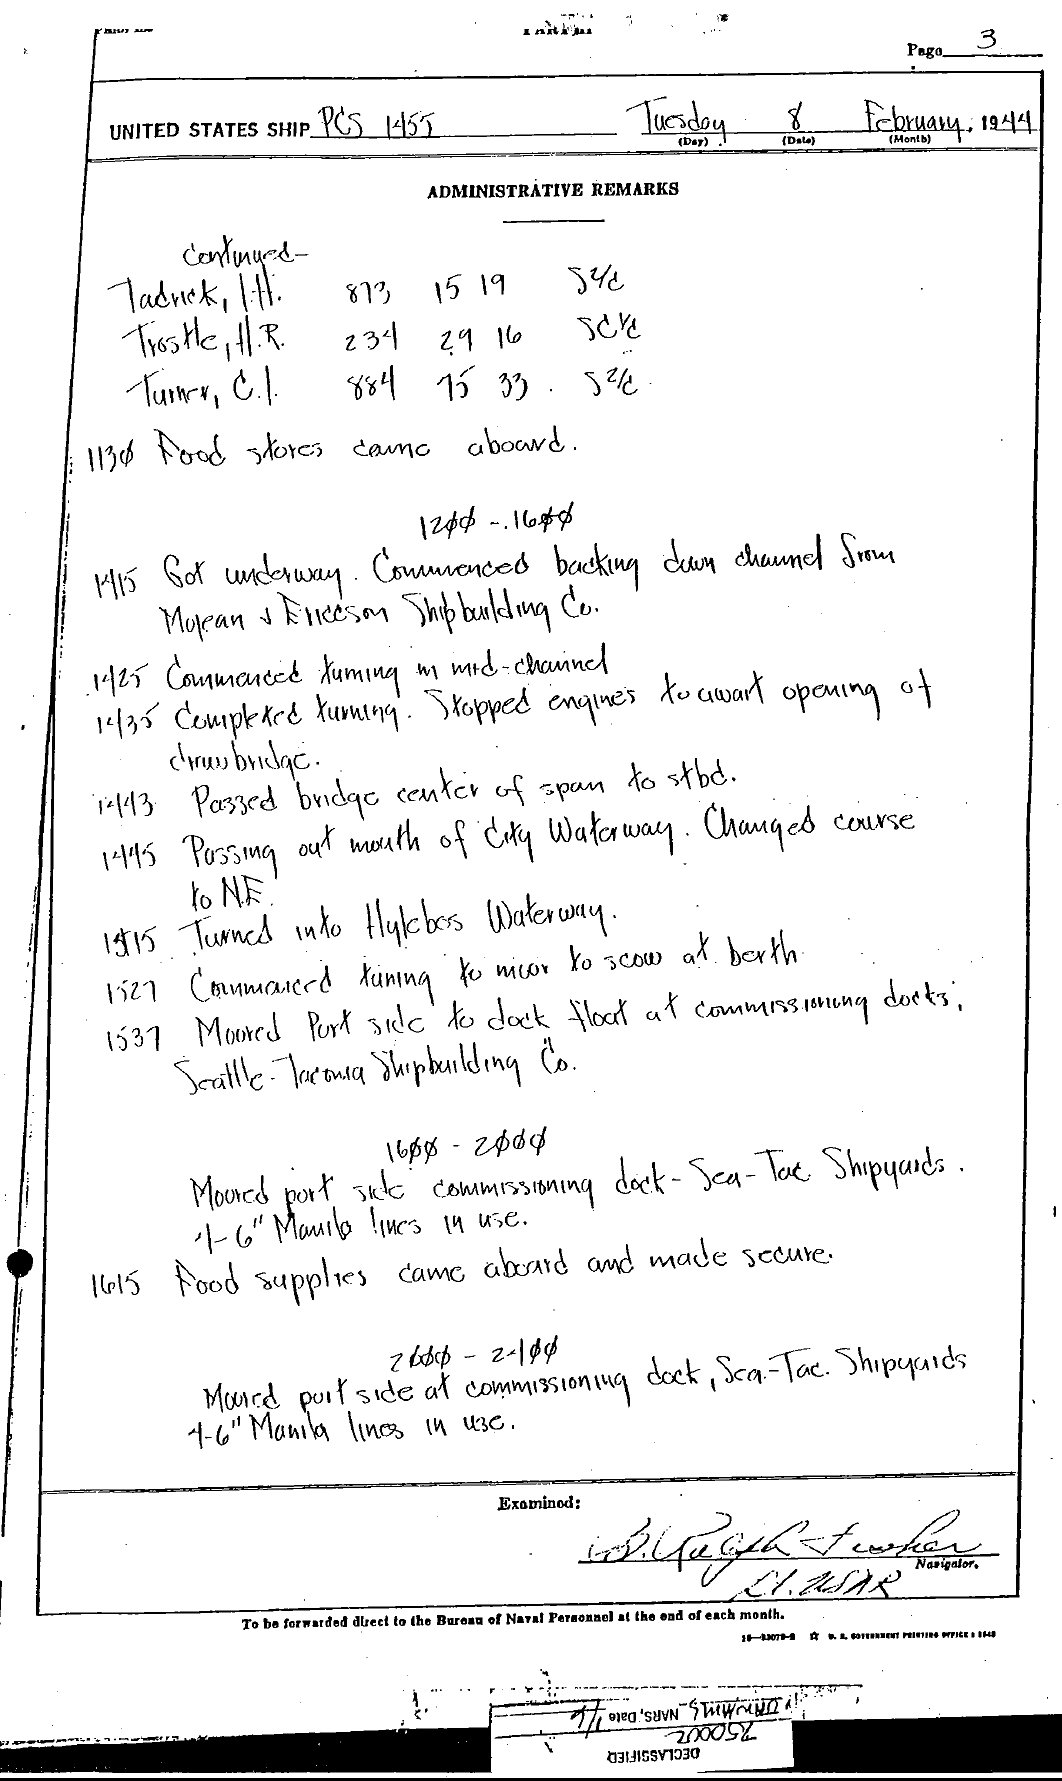 Page 3
UNITED STATES SHIP PCS 1455 Tuesday 8 February, 1944
(Day) (Date) (Month)
ADMINISTRATIVE REMARKS
Continued-
Tadrick, I.H. 873 15 19 S2/c
Trostle, H.R. 234 29 16 SC1/c
Turner, C.I. 884 75 33 S2/c
1130 Food stores came aboard.
1200 - 1600
1415 Got underway. Commenced backing down channel from
Mojean & Ericcson Shipbuilding Co.
1425 Commenced turning in mid-channel
1435 Completed turning. Stopped engines to await opening of
drawbridge.
1443 Passed bridge center of span to stbd.
1445 Passing out mouth of City Waterway. Changed course
to NE.
1515 Turned into Hylebos Waterway.
1527 Commenced turning to moor to scow at berth
1537 Moored Port side to dock float at commissioning docks,
Seattle-Tacoma Shipbuilding Co.
1600 - 2000
Moored port side commissioning dock - Sea-Tac Shipyards.
4-6" Manila lines in use.
1615 Food supplies came aboard and made secure.
2000 - 2400
Moored port side at commissioning dock, Sea-Tac. Shipyards
4-6" Manila lines in use.
Examined:
Navigator.
Lt. USNR
To be forwarded direct to the Bureau of Naval Personnel at the end of each month.
U. S. GOVERNMENT PRINTING OFFICE
DECLASSIFIED
750002
NARS, Date